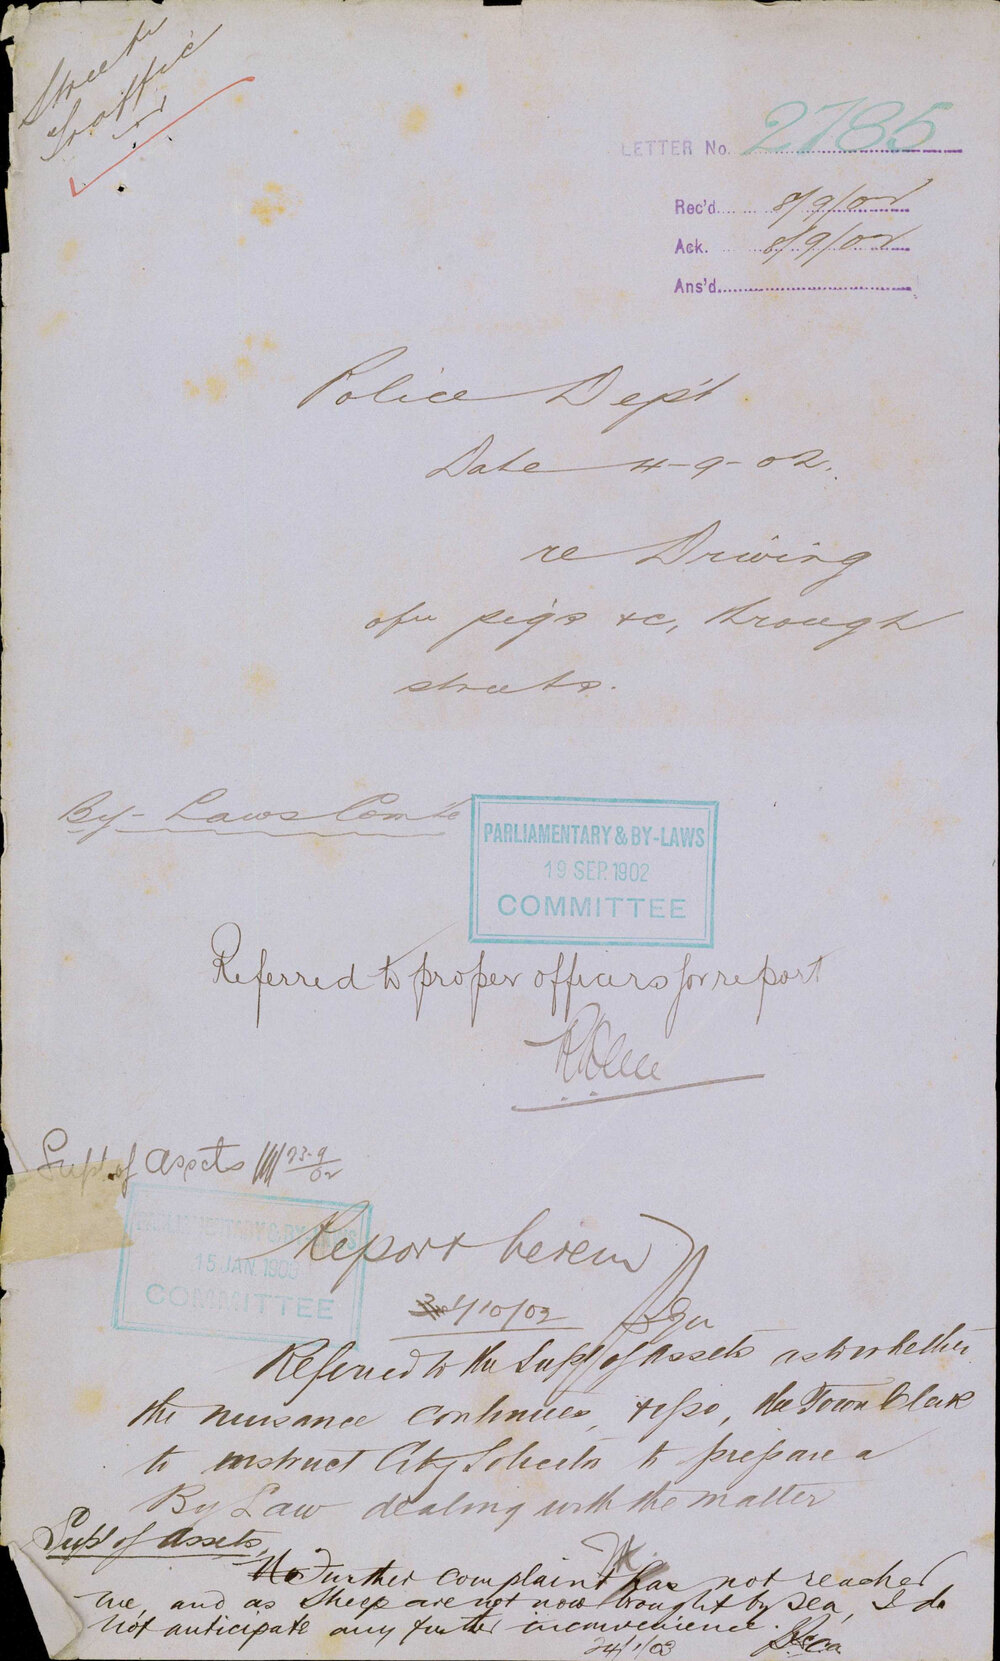 Streets
Traffic
LETTER No. 2785
Rec'd 8/9/02
Ack. 8/9/02
Ans'd
Police Dept
Date 4-9-02.
re Driving
of pigs &c, through
streets.
By-Laws Comte
PARLIAMENTARY & BY-LAWS
19 SEP. 1902
COMMITTEE
Referred to proper officers for report
Supt. of Assets 23-9/02
PARLIAMENTARY & BY-LAWS
15 JAN. 1903
COMMITTEE
Report herein
1/10/02
Referred to the Supt of Assets as to whether
the nuisance continues, & if so, the Town Clerk
to instruct City Solicitor to prepare a
By Law dealing with the matter
Supt of Assets,
No Further complaint has not reached
me, and as Sheep are not now brought by sea, I do
not anticipate any further inconvenience.
24/1/03